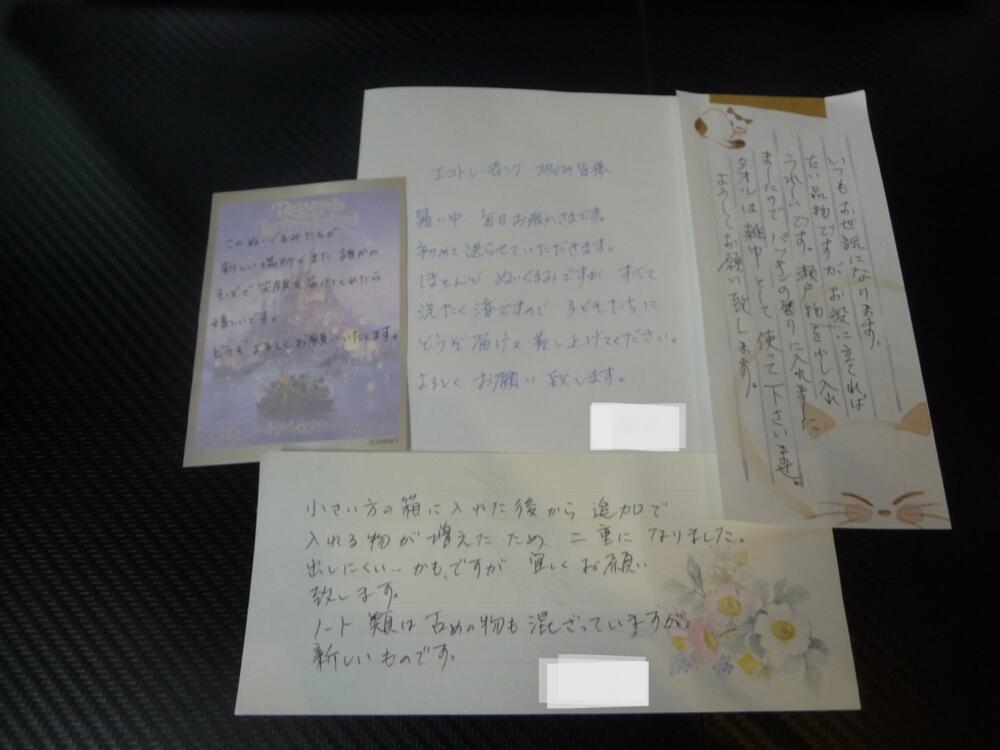 Rapunzel's
Lantern Festival
このぬいぐるみたちが
新しい場所でまた誰かの
そばで笑顔を届けてくれたら
嬉しいです。
どうぞよろしくお願いいたします。
© DISNEY
エコトレーディング 皆様
暑い中、毎日お疲れさまです。
初めて送らせていただきます。
ほとんどぬいぐるみですが、すべて
洗たく済ですので 子どもたちに
どうぞ届けて差し上げてください。
よろしくお願い致します。
いつもお世話になります。
古い品物ですがお役に立てれば
うれしいです。瀬戸物を少し入れ
ましたのでパッキンの替りに入れました
タオルは雑巾として使って下さいませ。
よろしくお願い致します。
小さい方の箱に入れた後から追加で
入れる物が増えたため 二重になりました。
出しにくい…かも、ですが 宜しくお願い
致します。
ノート類は古めの物も混ざっていますが、
新しいものです。